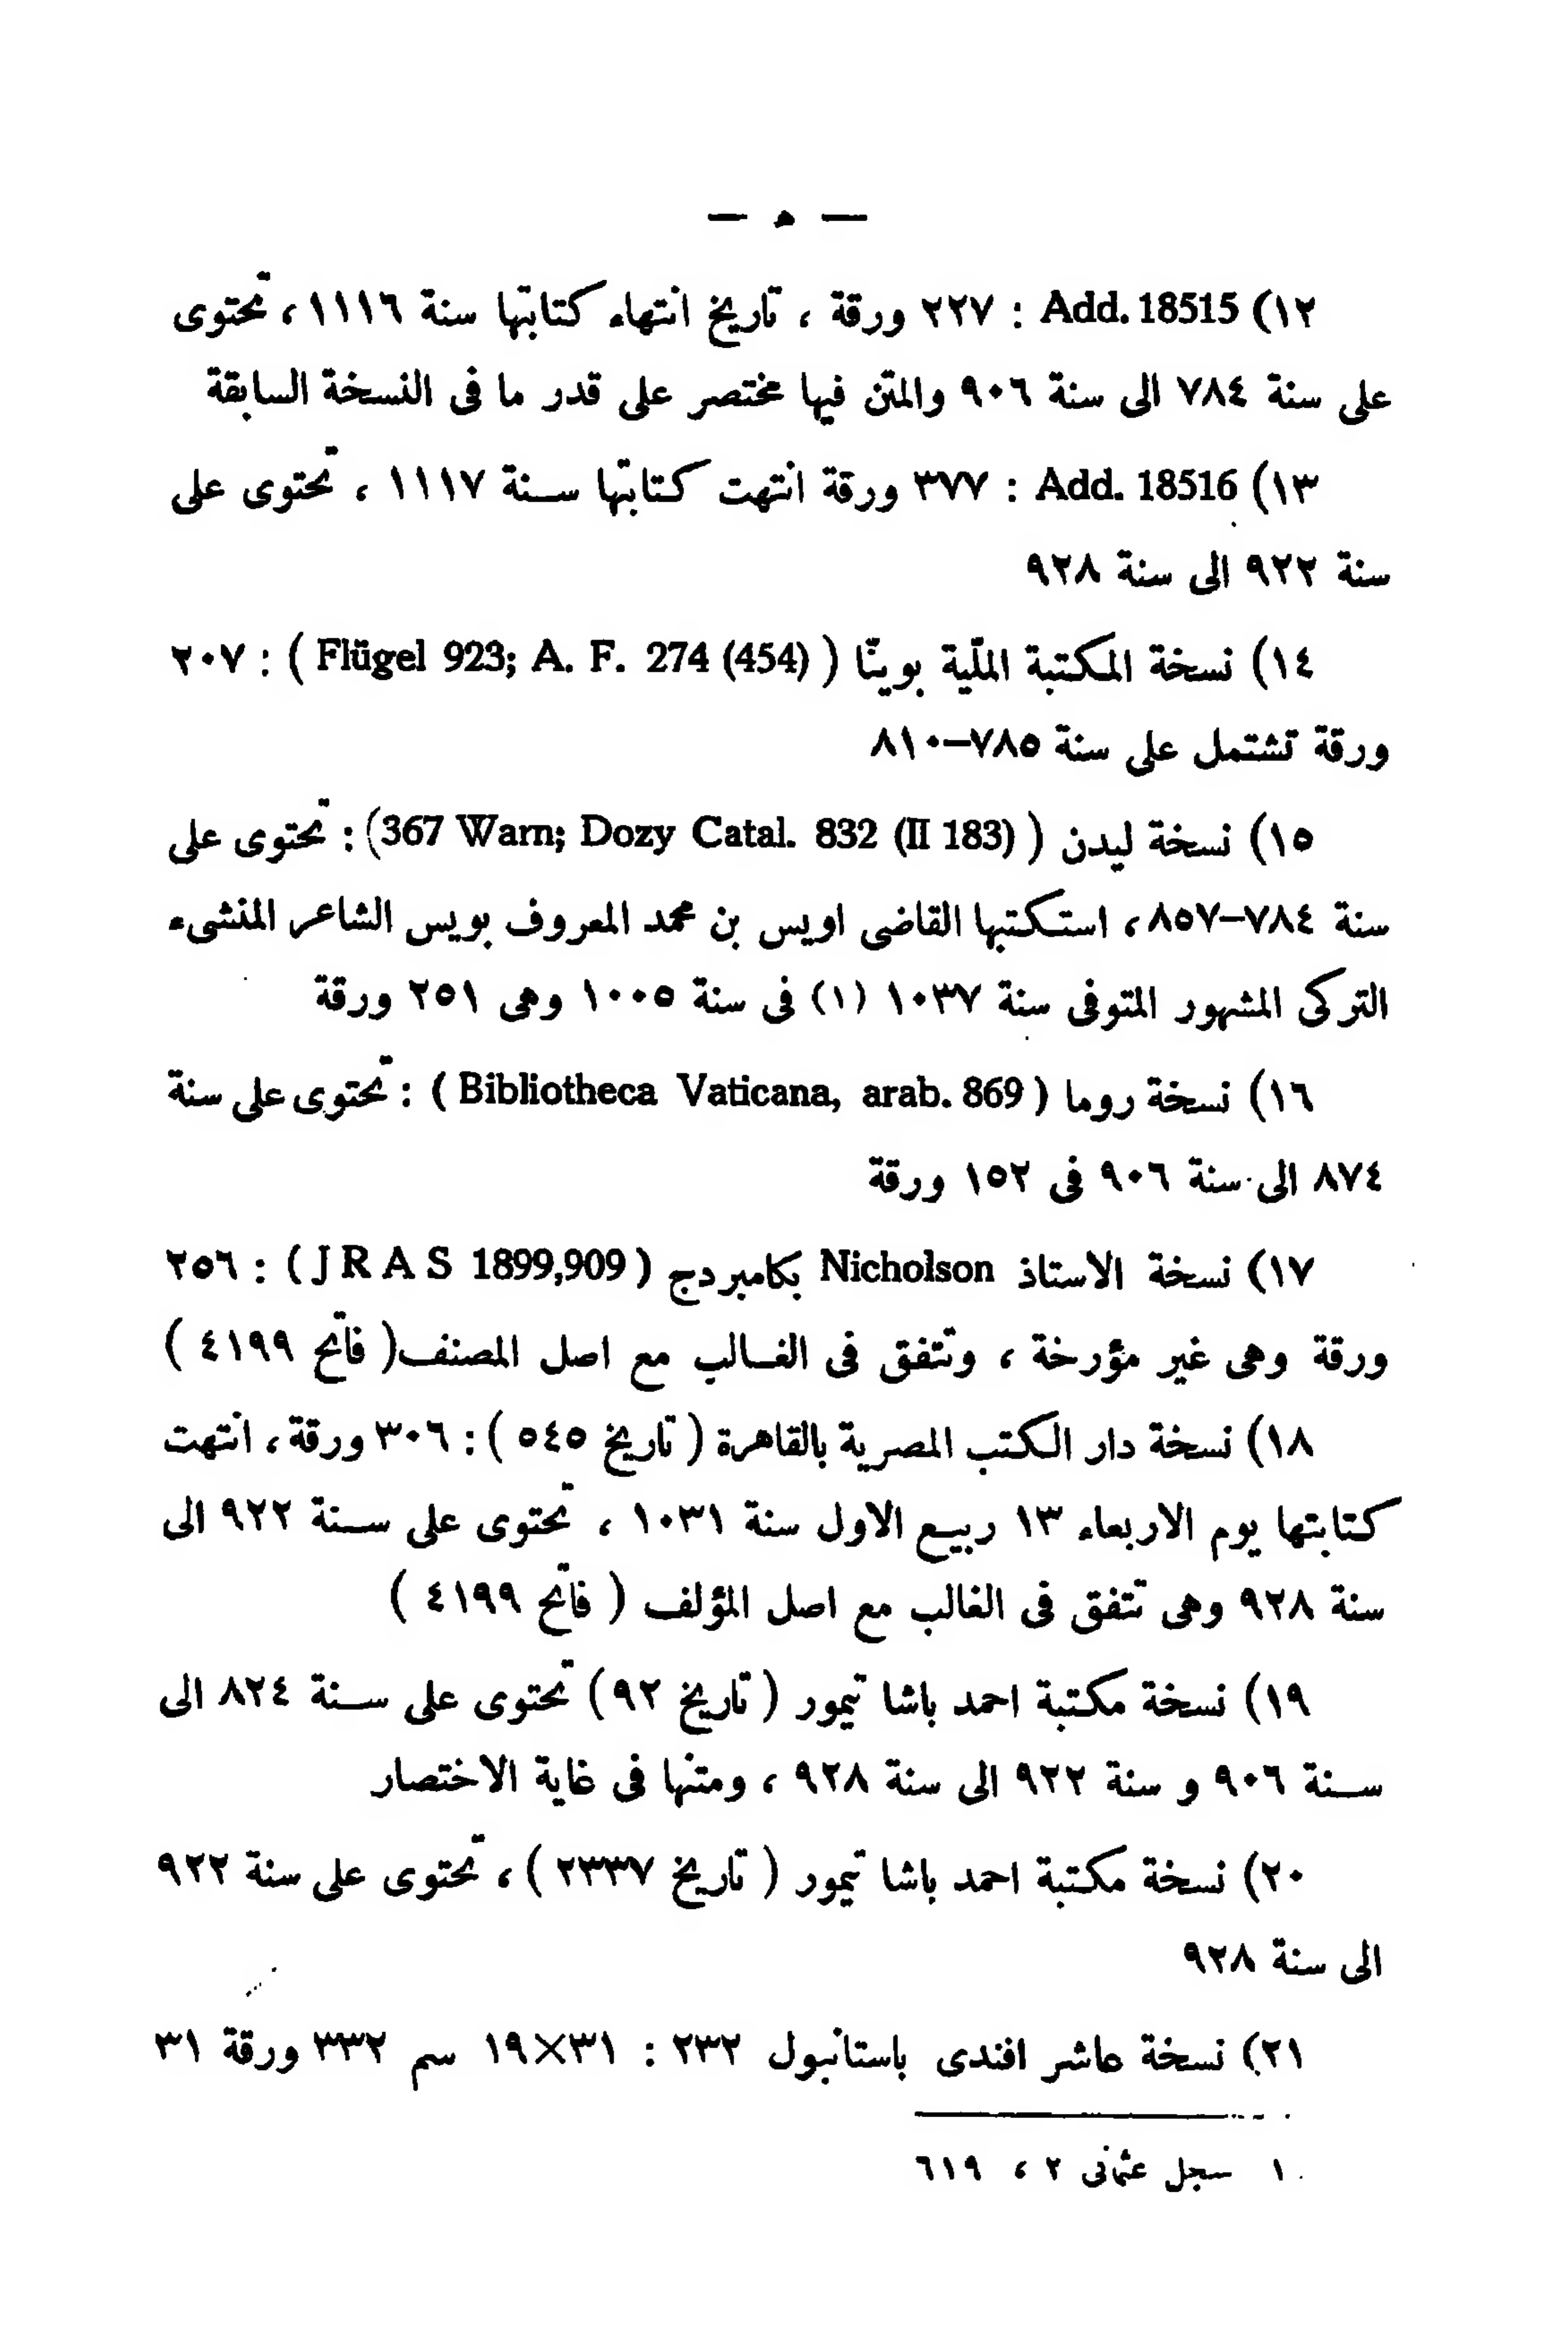 — ه —
١٢) Add. 18515 : ٢٢٧ ورقة ، تاريخ انتهاء كتابتها سنة ١١١٦ ، تحتوى
على سنة ٧٨٤ الى سنة ٩٠٦ والمتن فيها مختصر على قدر ما فى النسخة السابقة
١٣) Add. 18516 : ٣٧٧ ورقة انتهت كتابتها سنة ١١١٧ ، تحتوى على
سنة ٩٢٢ الى سنة ٩٢٨
١٤) نسخة المكتبة الملّية بوينّا ( Flügel 923; A. F. 274 (454) ) : ٢٠٧
ورقة تشتمل على سنة ٧٨٥–٨١٠
١٥) نسخة ليدن ( 367 Warn; Dozy Catal. 832 (II 183) ) : تحتوى على
سنة ٧٨٤–٨٥٧ ، استكتبها القاضى اويس بن محمد المعروف بويس الشاعر المنشىء
التركى المشهور المتوفى سنة ١٠٣٧ (١) فى سنة ١٠٠٥ وهى ٢٥١ ورقة
١٦) نسخة روما ( Bibliotheca Vaticana, arab. 869 ) : تحتوى على سنة
٨٧٤ الى سنة ٩٠٦ فى ١٥٢ ورقة
١٧) نسخة الاستاذ Nicholson بكامبردج ( J R A S 1899,909 ) : ٢٥٦
ورقة وهى غير مؤرخة ، وتتفق فى الغالب مع اصل المصنف ( فاتح ٤١٩٩ )
١٨) نسخة دار الكتب المصرية بالقاهرة ( تاريخ ٥٤٥ ) : ٣٠٦ ورقة ، انتهت
كتابتها يوم الاربعاء ١٣ ربيع الاول سنة ١٠٣١ ، تحتوى على سنة ٩٢٢ الى
سنة ٩٢٨ وهى تتفق فى الغالب مع اصل المؤلف ( فاتح ٤١٩٩ )
١٩) نسخة مكتبة احمد باشا تيمور ( تاريخ ٩٢ ) تحتوى على سنة ٨٢٤ الى
سنة ٩٠٦ و سنة ٩٢٢ الى سنة ٩٢٨ ، ومتنها فى غاية الاختصار
٢٠) نسخة مكتبة احمد باشا تيمور ( تاريخ ٢٣٣٧ ) ، تحتوى على سنة ٩٢٢
الى سنة ٩٢٨
٢١) نسخة عاشر افندى باستانبول ٢٣٢ : ٣١×١٩ سم ٣٣٢ ورقة ٣١
١ سجل عثمانى ٢ ، ٦١٩